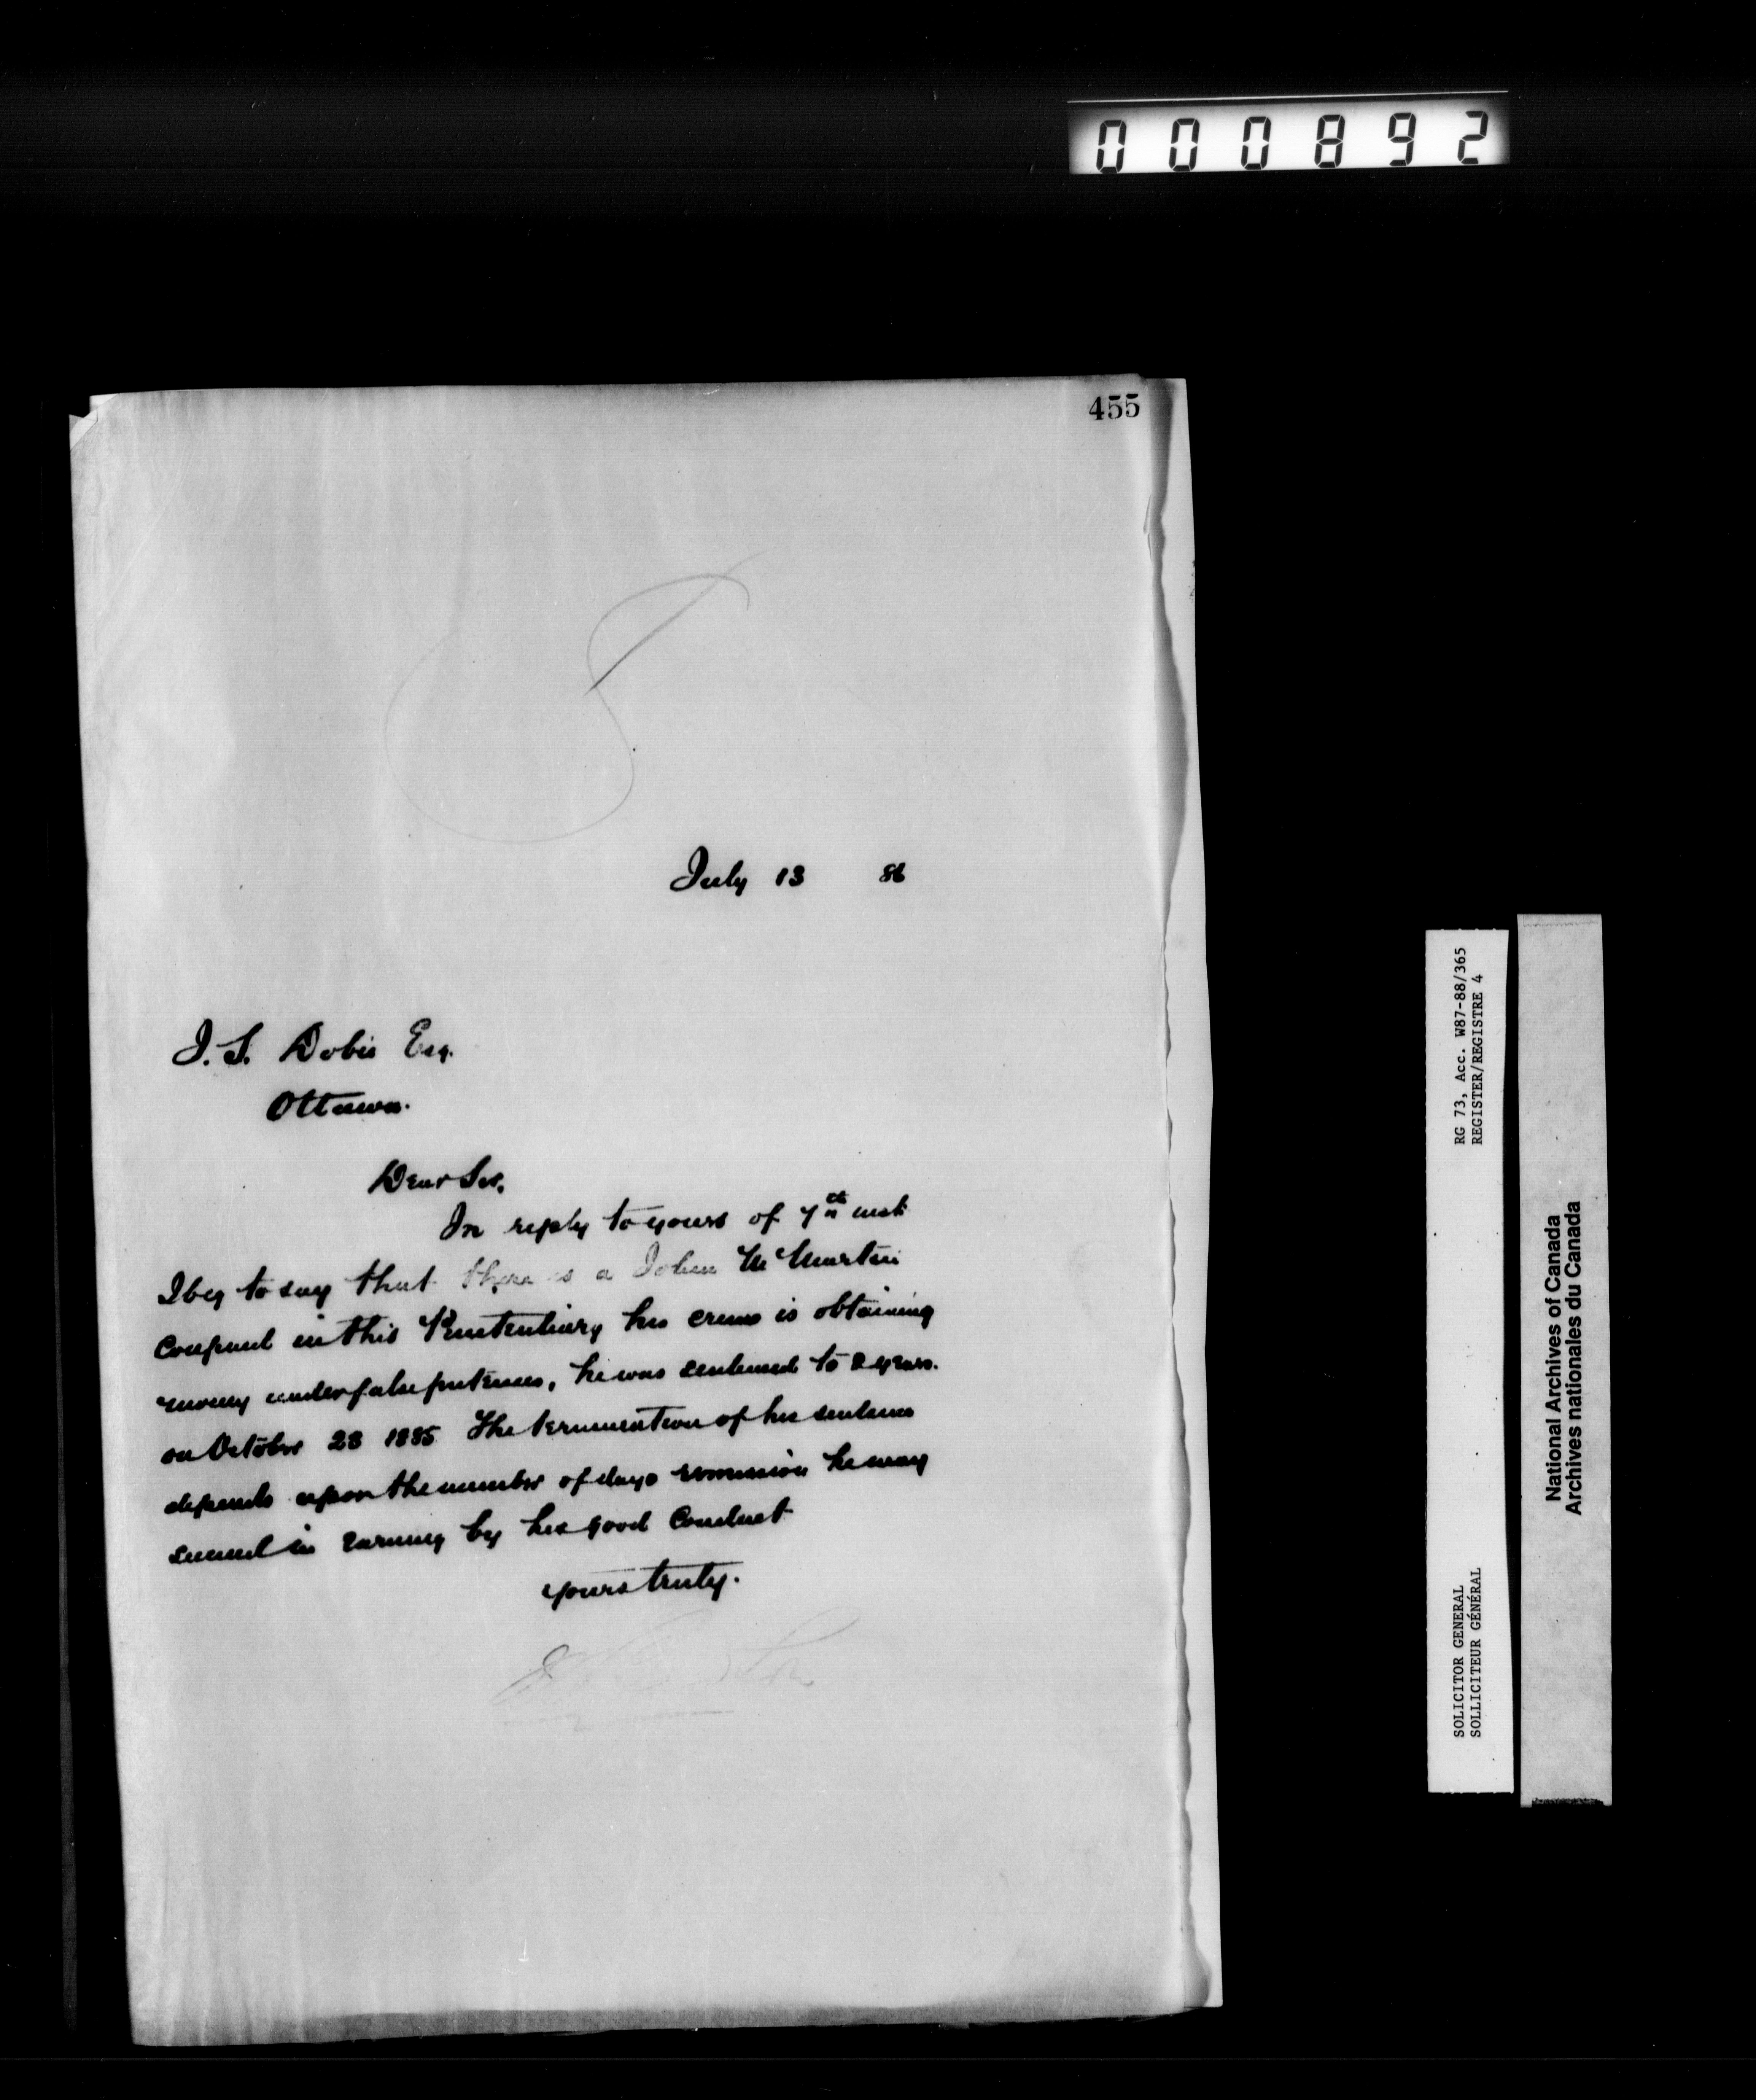 000892
455
July 13 86
J. S. Dobie Esq.
Ottawa.
Dear Sir,
In reply to yours of 7th inst
I beg to say that there is a John McMartin
confined in this Penitentiary his crime is obtaining
money under false pretences, he was sentenced to 2 years.
on October 28 1885 The termination of his sentence
depends upon the number of days remission he may
succeed in earning by his good Conduct
yours truly.
RG 73, Acc. W87-88/365
REGISTER/REGISTRE 4
SOLICITOR GENERAL
SOLLICITEUR GÉNÉRAL
National Archives of Canada
Archives nationales du Canada